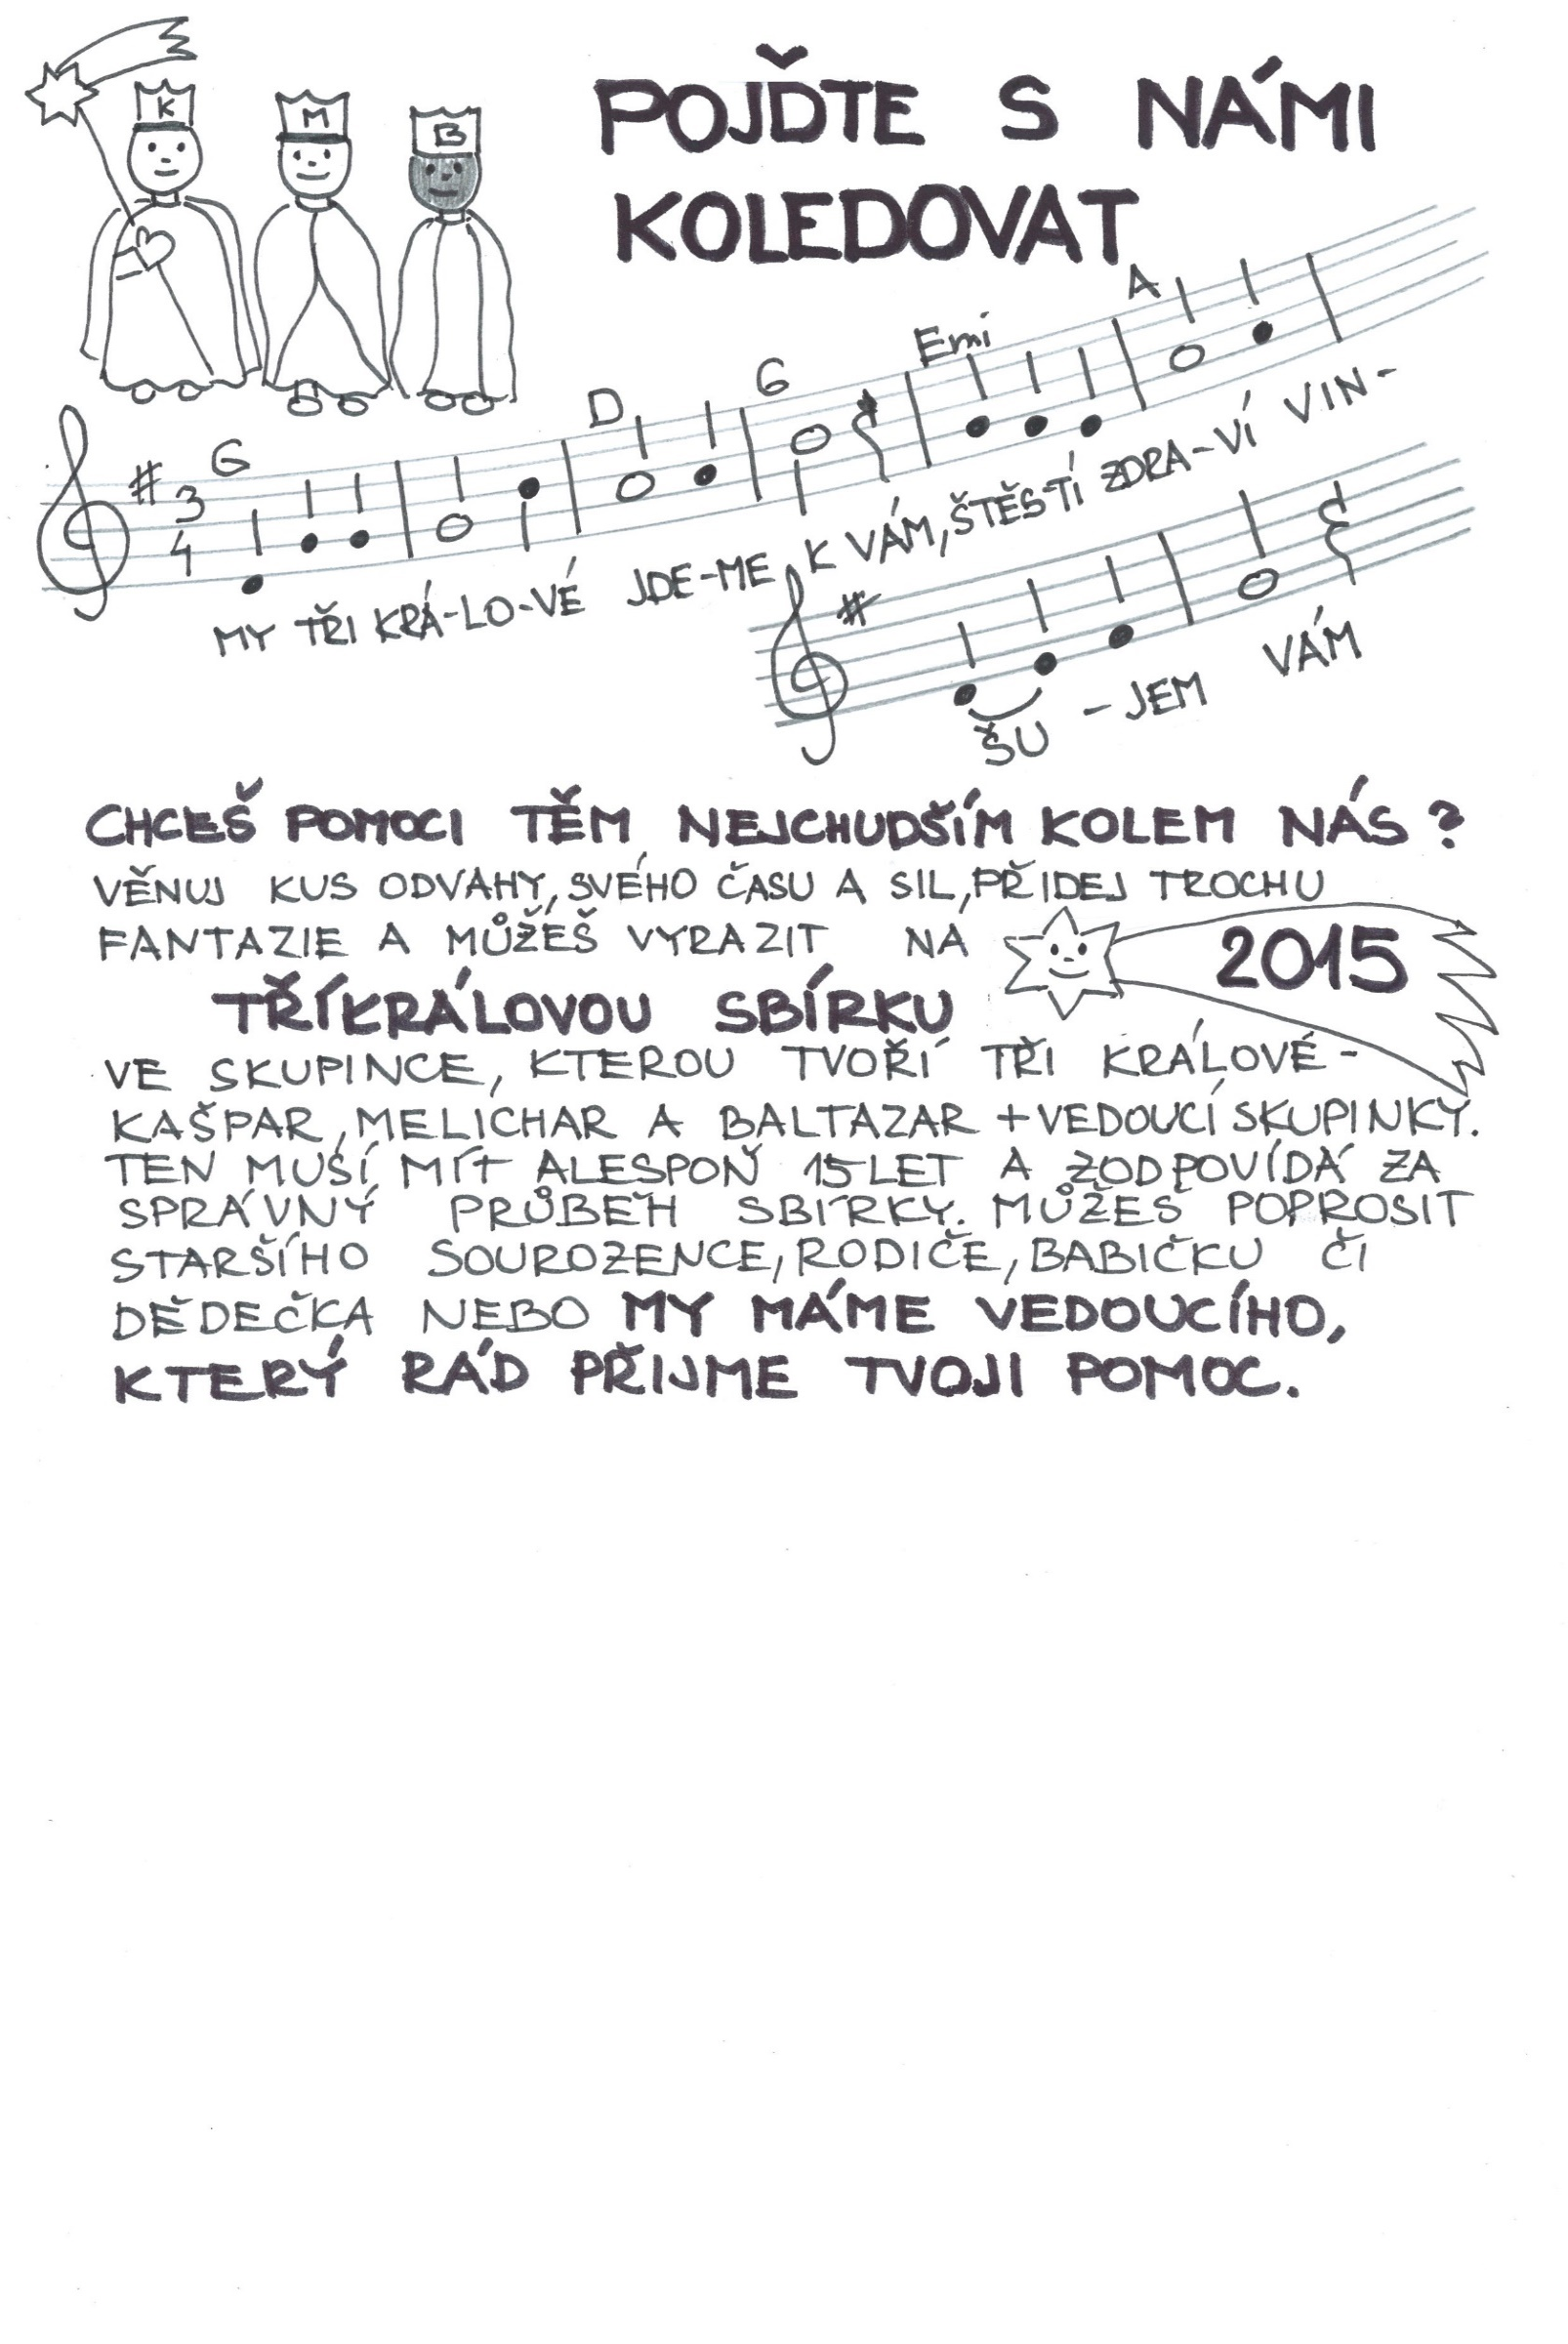 K M B
POJĎTE S NÁMI
KOLEDOVAT
G D G Emi A
# 3
4
MY TŘI KRÁ-LO-VÉ JDE-ME K VÁM, ŠTĚS-TÍ ZDRA-VÍ VIN-
#
ŠU - JEM VÁM
CHCEŠ POMOCI TĚM NEJCHUDŠÍM KOLEM NÁS?
VĚNUJ KUS ODVAHY, SVÉHO ČASU A SIL, PŘIDEJ TROCHU
FANTAZIE A MŮŽEŠ VYRAZIT NA 2015
TŘÍKRÁLOVOU SBÍRKU
VE SKUPINCE, KTEROU TVOŘÍ TŘI KRÁLOVÉ -
KAŠPAR, MELICHAR A BALTAZAR + VEDOUCÍ SKUPINKY.
TEN MUSÍ MÍT ALESPOŇ 15 LET A ZODPOVÍDÁ ZA
SPRÁVNÝ PRŮBĚH SBÍRKY. MŮŽEŠ POPROSIT
STARŠÍHO SOUROZENCE, RODIČE, BABIČKU ČI
DĚDEČKA NEBO MY MÁME VEDOUCÍHO,
KTERÝ RÁD PŘIJME TVOJI POMOC.